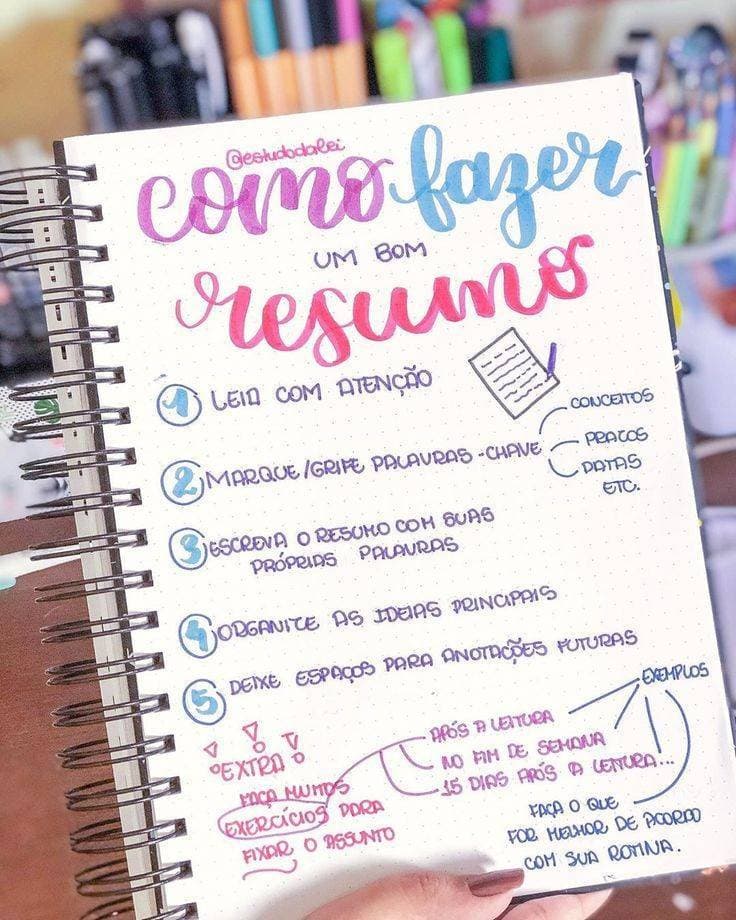 @estudodalei
como fazer
UM BOM
resumo
1 LEIA COM ATENÇÃO
2 MARQUE/GRIFE PALAVRAS-CHAVE
CONCEITOS
PRAZOS
DATAS
ETC.
3 ESCREVA O RESUMO COM SUAS
PRÓPRIAS PALAVRAS
4 ORGANIZE AS IDEIAS PRINCIPAIS
5 DEIXE ESPAÇOS PARA ANOTAÇÕES FUTURAS
EXTRA
FAÇA MUITOS
EXERCÍCIOS PARA
FIXAR O ASSUNTO
APÓS A LEITURA
NO FIM DE SEMANA
15 DIAS APÓS A LEITURA...
EXEMPLOS
FAÇA O QUE
FOR MELHOR DE ACORDO
COM SUA ROTINA.